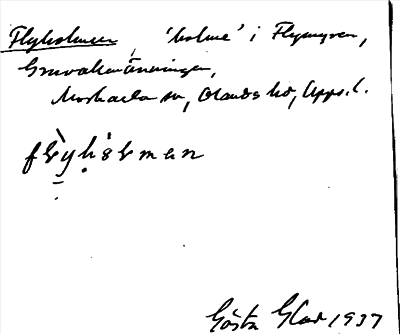 Flyholmen, 'holme' i Flymyren,
Gruvallmänningen,
Morkarla sn, Olands hd, Upps. l.
flyhɷlmɘn
Gösta Glad 1937